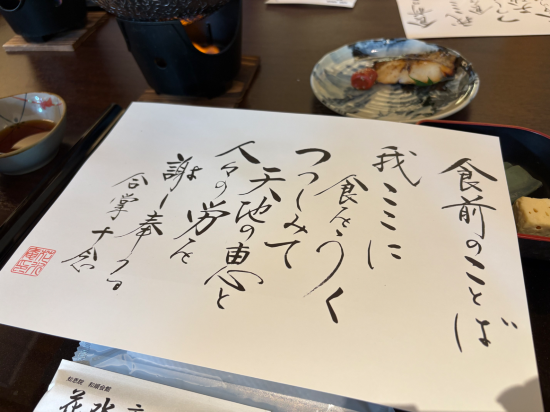 食前のことば
我ここに
食をうく
つつしみて
天地の恵と
人々の労を
謝し奉つる
合掌 十念
知恩院 和順会館
花水庵